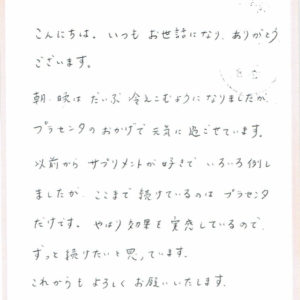 こんにちは。いつもお世話になり、ありがとう
ございます。
朝、晩はだいぶ冷えこむようになりましたが、
プラセンタのおかげで元気に過ごせています。
以前からサプリメントが好きでいろいろ例し
ましたが、ここまで続けているのはプラセンタ
だけです。やはり効果を実感しているので、
ずっと続けたいと思っています。
これからもよろしくお願いいたします。